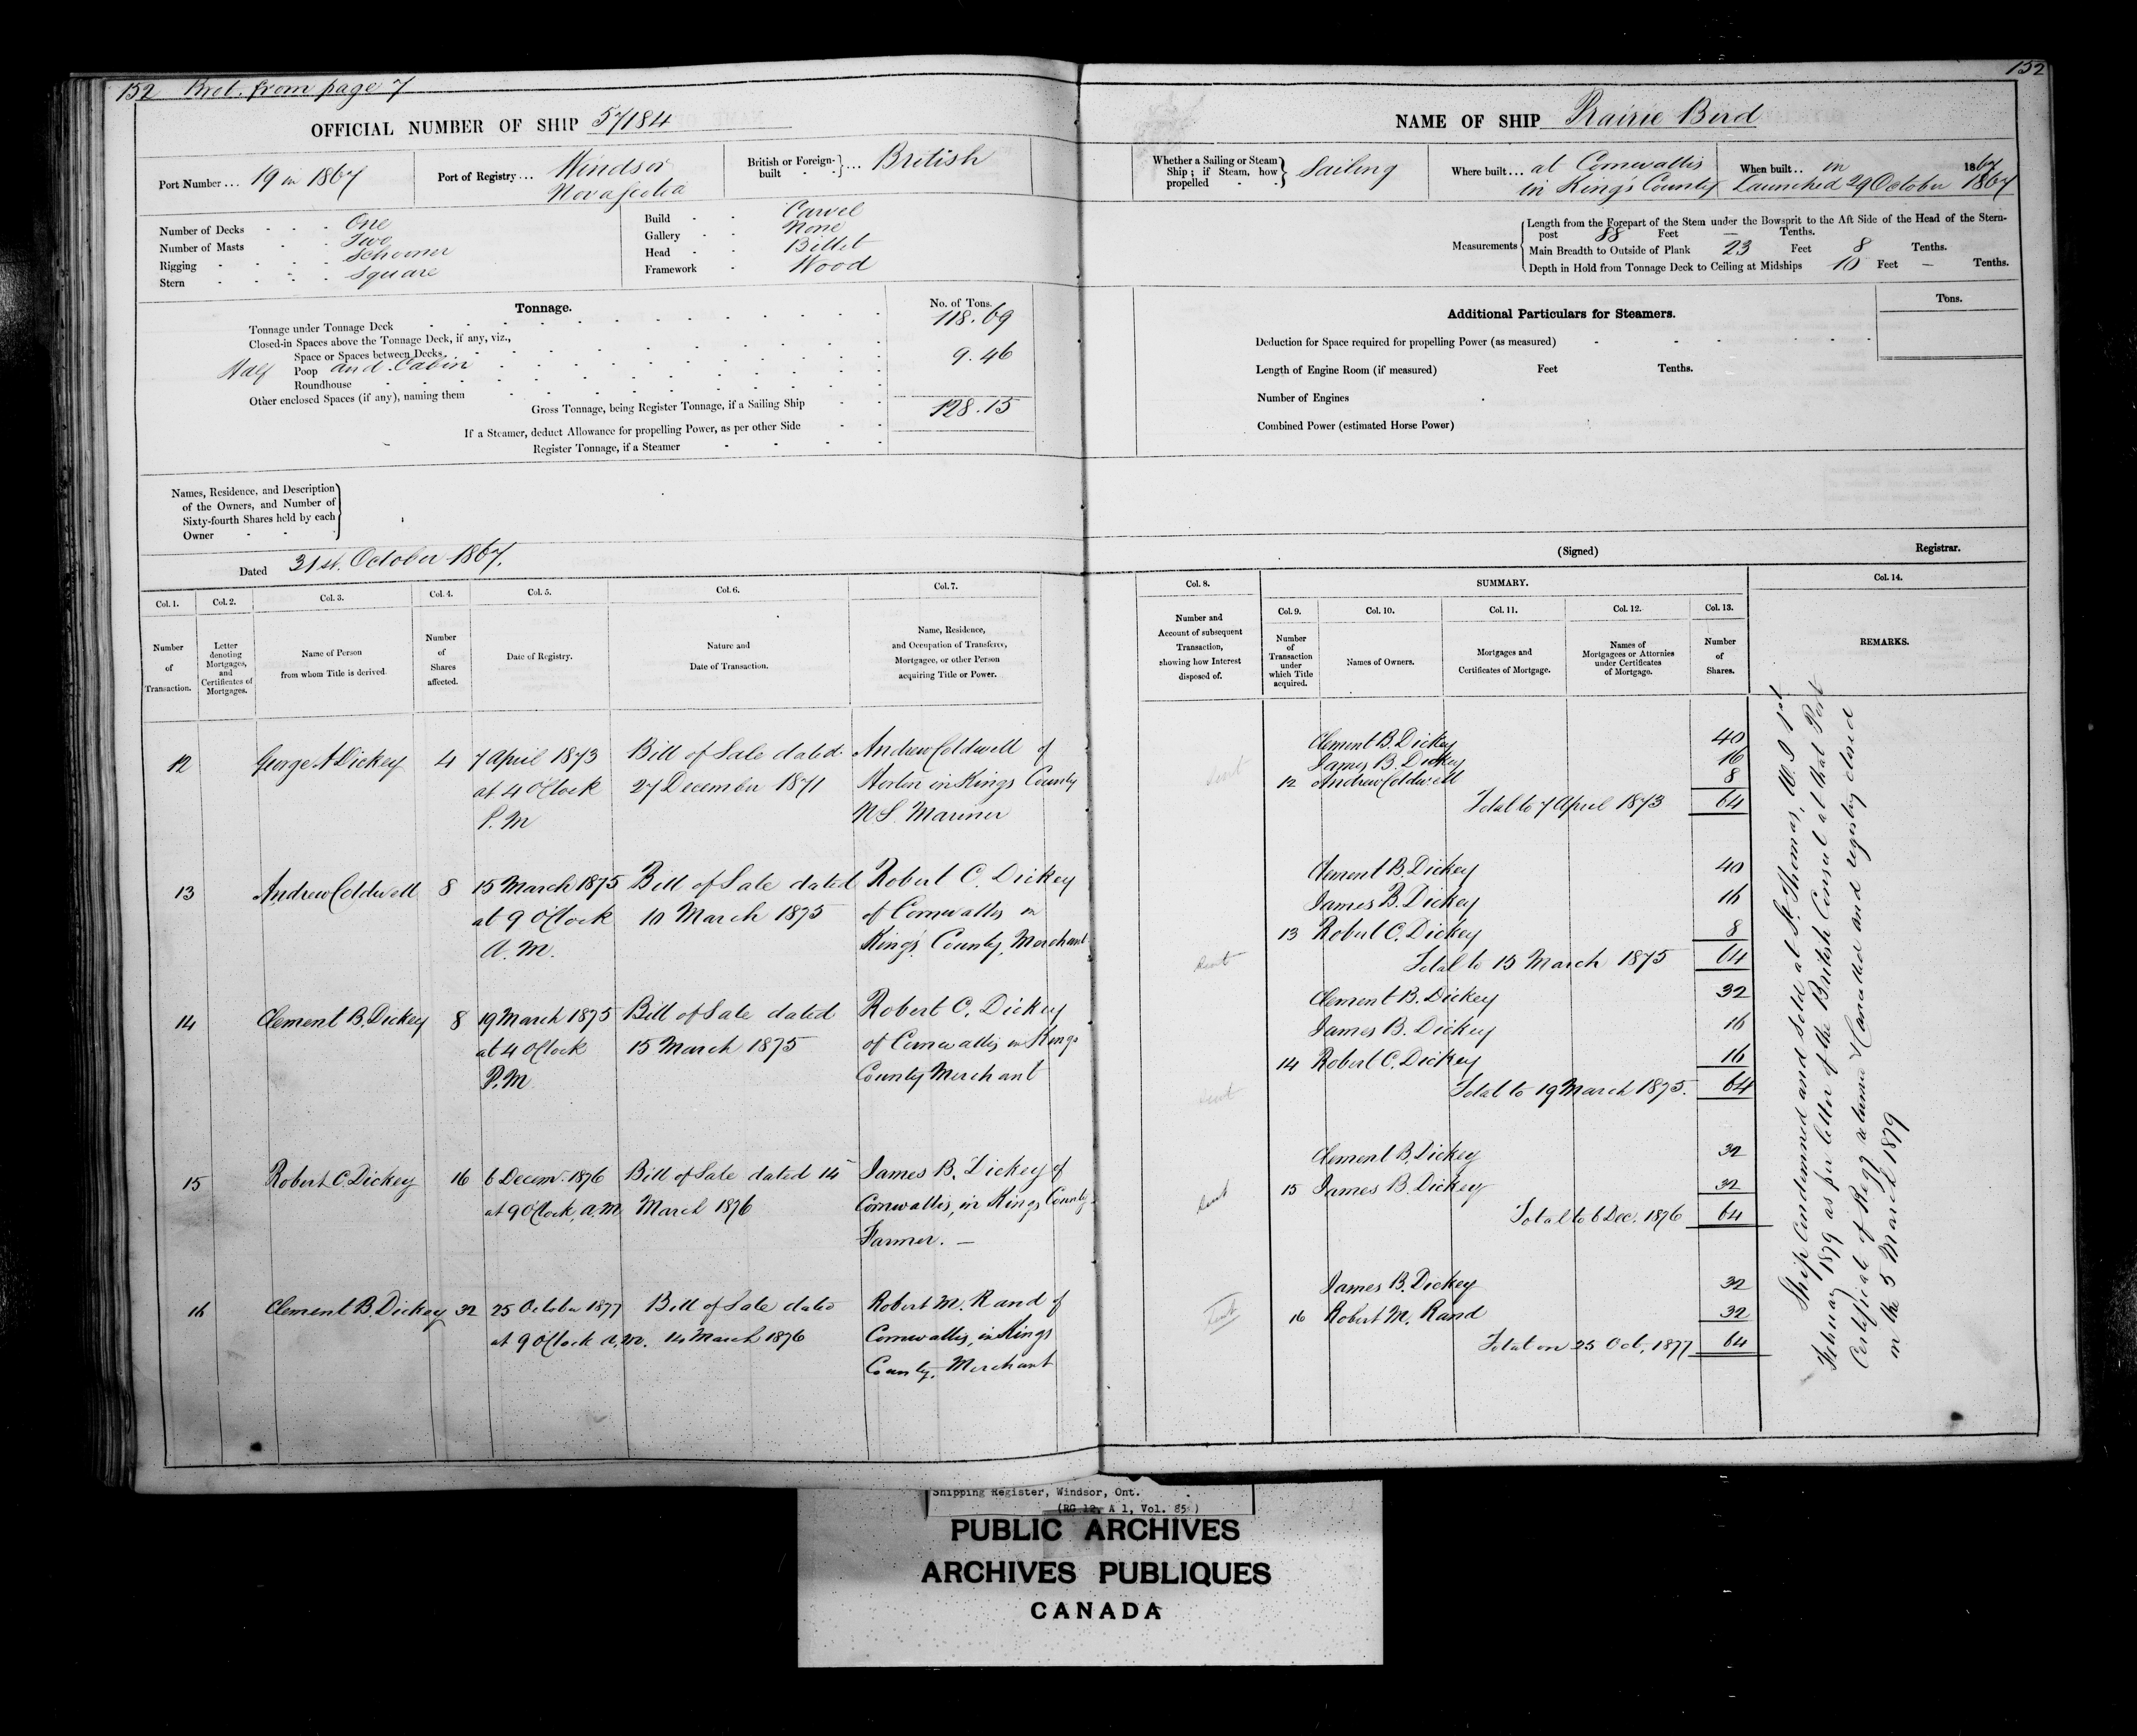 152 Brot. from page 7
OFFICIAL NUMBER OF SHIP 57184
Port Number ... 19 in 1867
Port of Registry ... Windsor
Nova Scotia
British or Foreign-
built - - } ... British
Number of Decks - - - One
Number of Masts - - Two
Rigging - - - - Schooner
Stern - - - - Square
Build - - Carvel
Gallery - - None
Head - - Billet
Framework - Wood
Tonnage.
No. of Tons.
Tonnage under Tonnage Deck 118.69
Closed-in Spaces above the Tonnage Deck, if any, viz.,
Space or Spaces between Decks
Half Poop and Cabin 9.46
Roundhouse
Other enclosed Spaces (if any), naming them
Gross Tonnage, being Register Tonnage, if a Sailing Ship 128.15
If a Steamer, deduct Allowance for propelling Power, as per other Side
Register Tonnage, if a Steamer
Names, Residence, and Description
of the Owners, and Number of
Sixty-fourth Shares held by each
Owner - -
Dated 31st. October 1867.
Col. 1. Col. 2. Col. 3. Col. 4. Col. 5. Col. 6. Col. 7.
Number
of
Transaction.
Letter
denoting
Mortgages,
and
Certificates of
Mortgages.
Name of Person
from whom Title is derived.
Number
of
Shares
affected.
Date of Registry.
Nature and
Date of Transaction.
Name, Residence,
and Occupation of Transferee,
Mortgagee, or other Person
acquiring Title or Power.
12 George A Dickey 4 7 April 1873 Bill of Sale dated Andrew Coldwell of
at 4 O'Clock 27 December 1871 Horton in Kings County
P.M N S Mariner
13 Andrew Coldwell 8 15 March 1875 Bill of Sale dated Robert C. Dickey
at 9 O'Clock 10 March 1875 of Cornwallis in
A.M. King's County, Merchant
14 Clement B. Dickey 8 19 March 1875 Bill of Sale dated Robert C. Dickey
at 4 O'Clock 15 March 1875 of Cornwallis in Kings
P.M. County Merchant
15 Robert C. Dickey 16 6 Decem. 1876 Bill of Sale dated 14 James B. Dickey of
at 9 O'Clock, A.M. March 1876 Cornwallis, in Kings County
Farmer. —
16 Clement B. Dickey 32 25 October 1877 Bill of Sale dated Robert M. Rand of
at 9 O'Clock A.M. 14 March 1876 Cornwallis, in Kings
County, Merchant
152
NAME OF SHIP Prairie Bird
Whether a Sailing or Steam
Ship; if Steam, how
propelled - - } Sailing
Where built ... at Cornwallis
in King's County
When built .. in 1867
Launched 29 October 1867
Measurements
Length from the Forepart of the Stem under the Bowsprit to the Aft Side of the Head of the Stern-
post 88 Feet — Tenths.
Main Breadth to Outside of Plank 23 Feet 8 Tenths.
Depth in Hold from Tonnage Deck to Ceiling at Midships 10 Feet — Tenths.
Additional Particulars for Steamers.
Tons.
Deduction for Space required for propelling Power (as measured)
Length of Engine Room (if measured) Feet Tenths.
Number of Engines
Combined Power (estimated Horse Power)
(Signed) Registrar.
Col. 8. SUMMARY. Col. 14.
Col. 9. Col. 10. Col. 11. Col. 12. Col. 13.
Number and
Account of subsequent
Transaction,
showing how Interest
disposed of.
Number
of
Transaction
under
which Title
acquired.
Names of Owners.
Mortgages and
Certificates of Mortgage.
Names of
Mortgagees or Attornies
under Certificates
of Mortgage.
Number
of
Shares.
REMARKS.
Clement B. Dickey 40
James B. Dickey 16
12 Andrew Coldwell 8
Total to 7 April 1873 64
Clement B. Dickey 40
James B. Dickey 16
13 Robert C. Dickey 8
Total to 15 March 1875 64
Clement B. Dickey 32
James B. Dickey 16
14 Robert C. Dickey 16
Total to 19 March 1875. 64
Clement B. Dickey 32
15 James B. Dickey 32
Total to 6 Dec. 1876 64
James B. Dickey 32
16 Robert M. Rand 32
Total on 25 Oct. 1877 64
Ship Condemned and sold at St. Thomas, W. I 1st
February 1879 as per letter of the British Consul at that Port
Certificate of Regy returned & Cancelled and registry closed
in the 5 March 1879
Shipping Register, Windsor, Ont.
(RG 12, A 1, Vol. 85)
PUBLIC ARCHIVES
ARCHIVES PUBLIQUES
CANADA